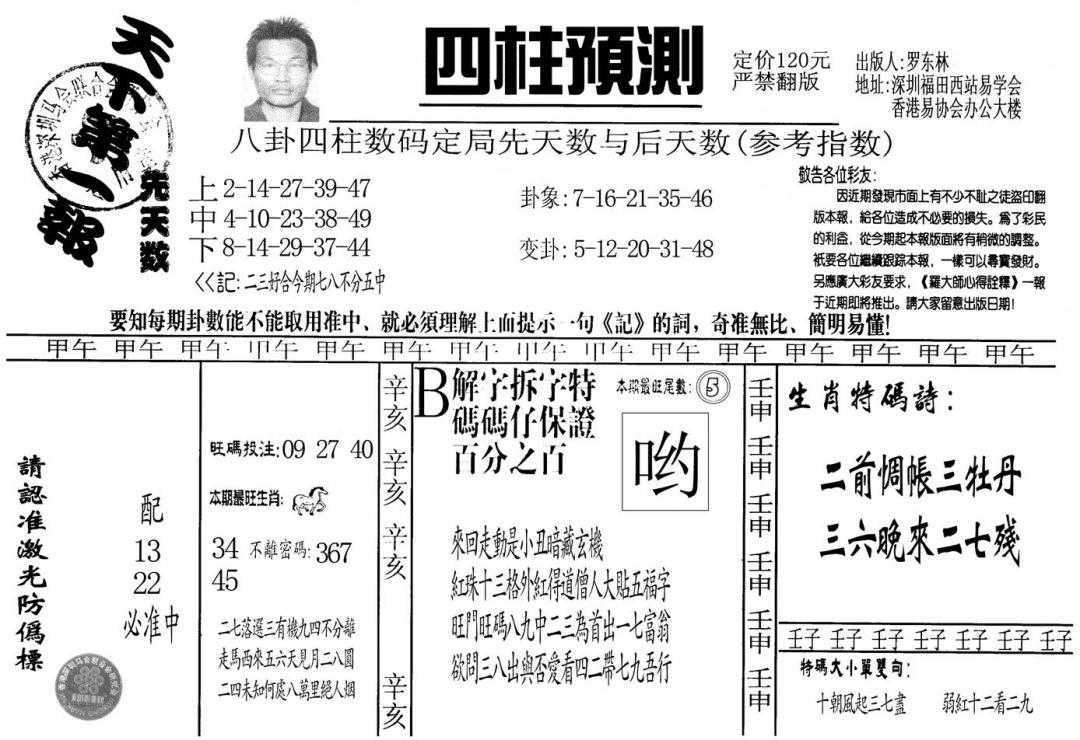 天下第一報
四柱預測
定价120元
严禁翻版
出版人:罗东林
地址:深圳福田西站易学会
香港易协会办公大楼
八卦四柱数码定局先天数与后天数(参考指数)
先天数
上 2-14-27-39-47
中 4-10-23-38-49
下 8-14-29-37-44
卦象:7-16-21-35-46
变卦:5-12-20-31-48
<<記:二三好合今期七八不分五中
敬告各位彩友:
因近期發現市面上有不少不恥之徒盜印翻
版本報,給各位造成不必要的損失。爲了彩民
的利益,從今期起本報版面將有稍微的調整。
衹要各位繼續跟踪本報,一樣可以尋寶發財。
另應廣大彩友要求,《羅大師心得詮釋》一報
于近期即將推出。請大家留意出版日期!
要知每期卦數能不能取用准中、就必須理解上面提示一句《記》的詞,奇准無比、簡明易懂!
甲午 甲午 甲午 甲午 甲午 甲午 甲午 甲午 甲午 甲午 甲午 甲午 甲午 甲午 甲午
請認准激光防僞標
配
13
22
必准中
旺碼投注:09 27 40
本期最旺生肖:
34 不離密碼:367
45
二七落選三有機九四不分離
走馬西來五六天見月二八圓
二四未知何處八萬里絕人烟
辛亥
辛亥
辛亥
辛亥
B
解字拆字特
碼碼仔保證
百分之百
本期最旺尾數:5
哟
來回走動是小丑暗藏玄機
紅珠十三格外紅得道僧人大貼五福字
旺門旺碼八九中二三為首出一七富翁
欲問三八出與否愛看四二帶七九吾行
壬申
壬申
壬申
壬申
壬申
壬申
生肖特碼詩:
二前惆帳三牡丹
三六晚來二七殘
壬子 壬子 壬子 壬子 壬子 壬子 壬子
特碼大小單雙句:
十朝風起三七盡 弱紅十二看二九